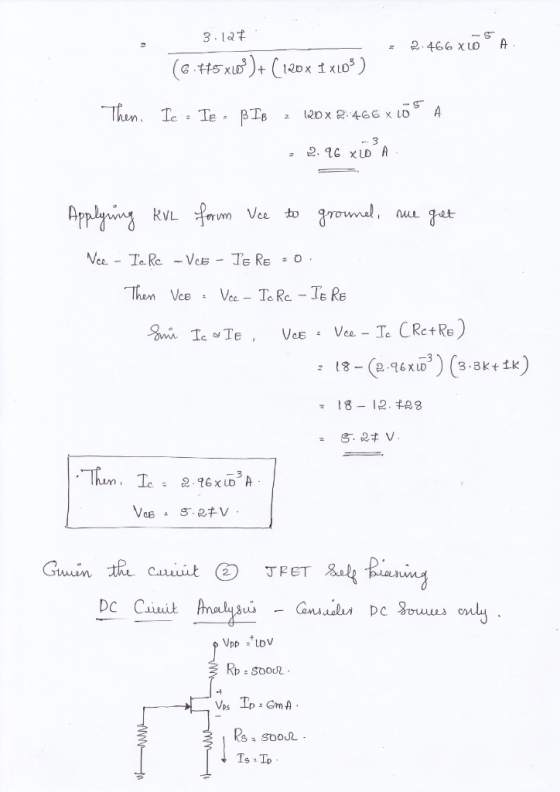 = 3.127 / (6.775×10³) + (120 × 1×10³) = 2.466 ×10⁻⁵ A.
Then, Ic = IE = βIB = 120 × 2.466 × 10⁻⁵ A
= 2.96 ×10⁻³ A.
Applying KVL form Vcc to ground, we get
Vcc - IcRc - VCE - IERE = 0.
Then VCE = Vcc - IcRc - IERE
Sin Ic ≃ IE, VCE = Vcc - Ic (Rc+RE)
= 18 - (2.96×10⁻³) (3.3K+1K)
= 18 - 12.728
= 5.27 V.
Then, Ic = 2.96×10⁻³ A.
VCE = 5.27 V.
Given the circuit ② JFET Self biasing
DC Circuit Analysis - Consider DC Sources only.
VDD = +10V
RD = 500Ω.
+
VDS ID = 6mA.
-
RS = 500Ω.
IS = ID.